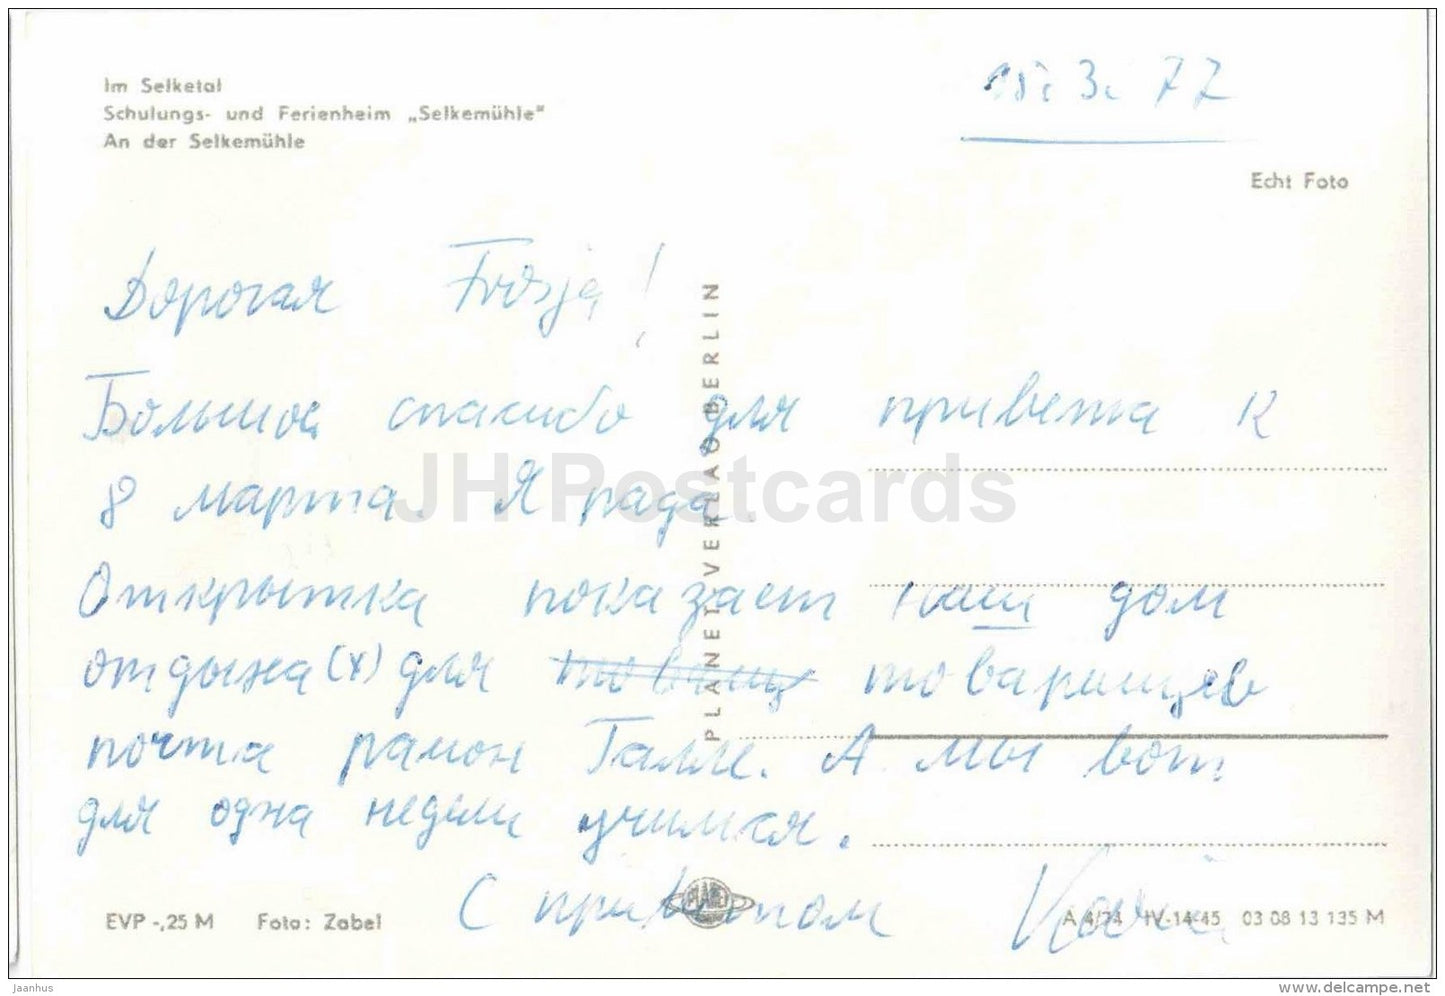 Im Selketal
Schulungs- und Ferienheim „Selkemühle"
An der Selkemühle
15. 3. 77
Echt Foto
Дорогая Frosja!
Большое спасибо для привета к
8 марта. Я рада.
Открытка показает наш дом
отдыха (x) для товарищев
почта район Галле. А мы вот
для одна недели учимся.
С приветом
PLANET-VERLAG BERLIN
JH Postcards
PLANET
EVP -,25 M Foto: Zabel
A 4/74 IV-14-45 03 08 13 135 M
jaanhus
www.delcampe.net